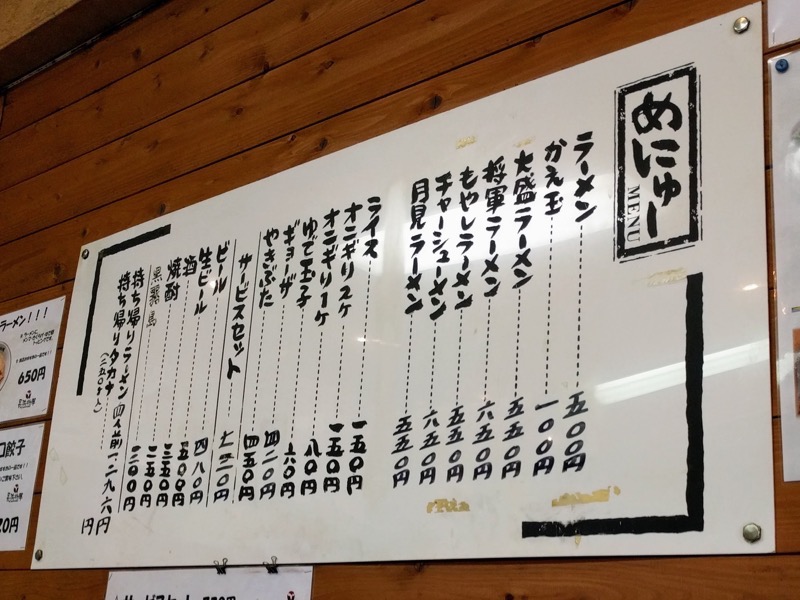 めにゅー
MENU
ラーメン 五〇〇円
かえ玉 一〇〇円
大盛ラーメン 五五〇円
将軍ラーメン 六五〇円
もやしラーメン 五五〇円
チャーシューメン 六五〇円
月見ラーメン 五五〇円
ライス 一五〇円
オニギリ2ケ 一五〇円
オニギリ1ケ 八〇円
ゆで玉子 六〇円
ギョーザ 四二〇円
やきぶた 四五〇円
サービスセット 七二〇円
ビール 四八〇円
生ビール 五〇〇円
酒 三五〇円
焼酎 二五〇円
黒霧島 三〇〇円
持ち帰りラーメン 四人前 一二九六円
持ち帰りタカナ 円
ラーメン!!!
650円
口餃子